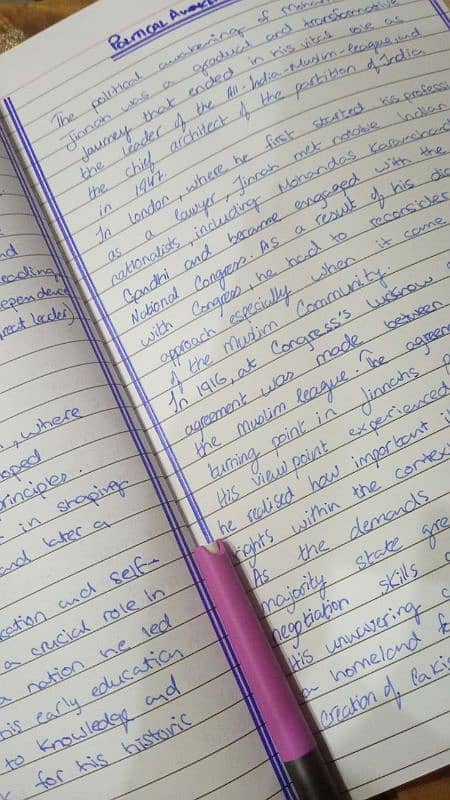 POLITICAL AWAKE
The political awakening of Moham
Jinnah was a gradual and transformative
journey that ended in his vital role as
the leader of the All-India-Muslim-league and
the chief architect of the partition of India
in 1947.
In London, where he first started his professi
as a lawyer, Jinnah met notable Indian
nationalists, including Mohandas Karamchand
Gandhi and became engaged with the
National Congress. As a result of his dis
with Congress, he had to reconsider
approach especially when it came
of the Muslim Community.
In 1916, at Congress's Lucknow
agreement was made between
the Muslim league. The agreem
turning point in Jinnahs
His view point experienced
he realised how important i
rights within the context
As the demands
majority state gre
negotiation skills
His unwavering
a homeland f
Creation of Pakis
nd
eading
ependence
reat leader)
, where
oped
principles.
t in shaping
and later a
cation and self-
a crucial role in
a nation he led
his early education
to knowledge and
for his historic